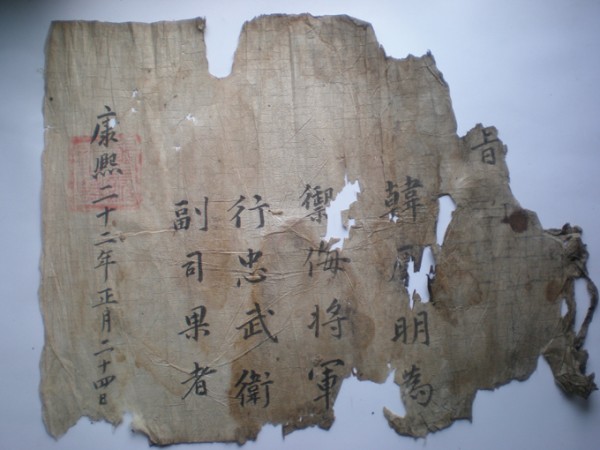 旨
韓 明為
禦侮將軍
行忠武衛
副司果者
康熙二十二年正月二十四日